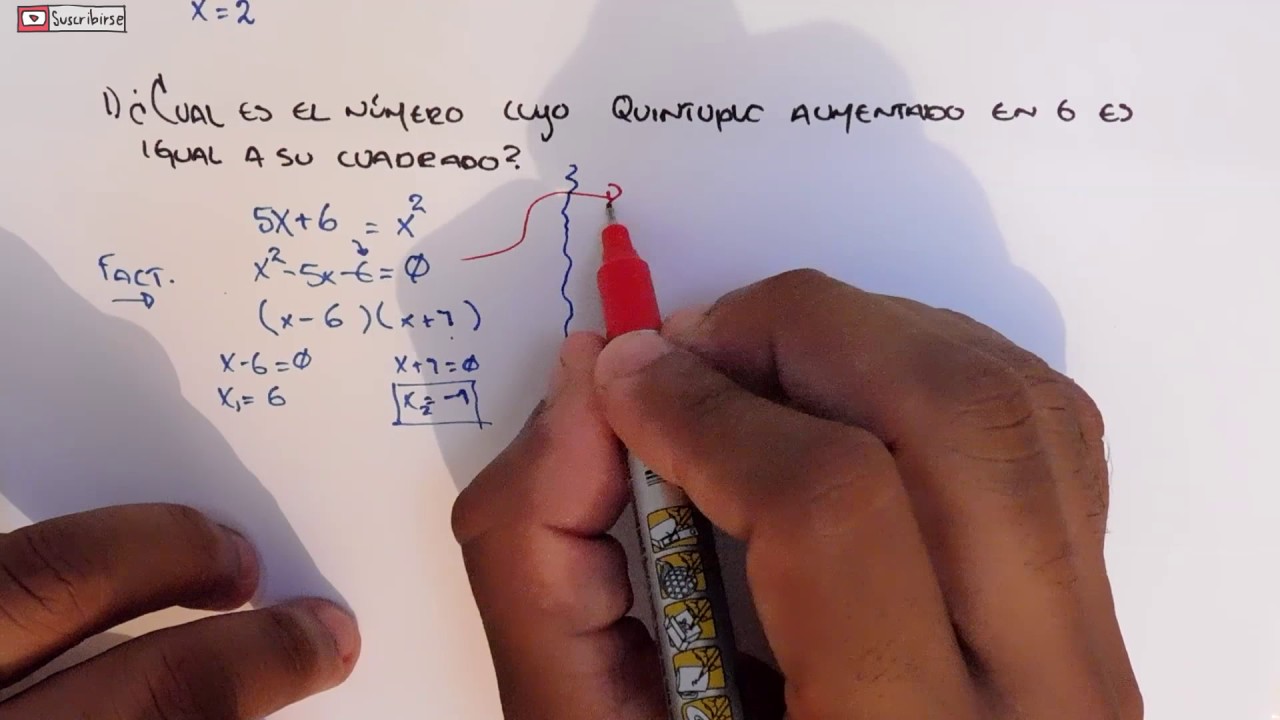 Suscribirse
x = 2
1) ¿Cual es el número cuyo quintuplo aumentado en 6 es
igual a su cuadrado?
5x+6 = x²
Fact. x²-5x-6=0
(x-6)(x+1)
x-6=0 x+1=0
x₁=6 x₂=-1